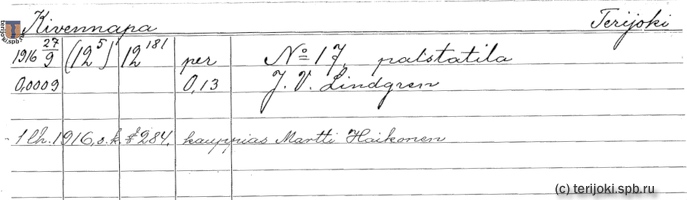 Kivennapa Terijoki
1916 27/9 (12⁵) 12¹⁸¹ per No 17, palstatila
0,0009 0,13 J. V. Lindgren
1 lh. 1916, s.k. § 284, kauppias Martti Haikonen
terijoki.spb.ru
(c) terijoki.spb.ru